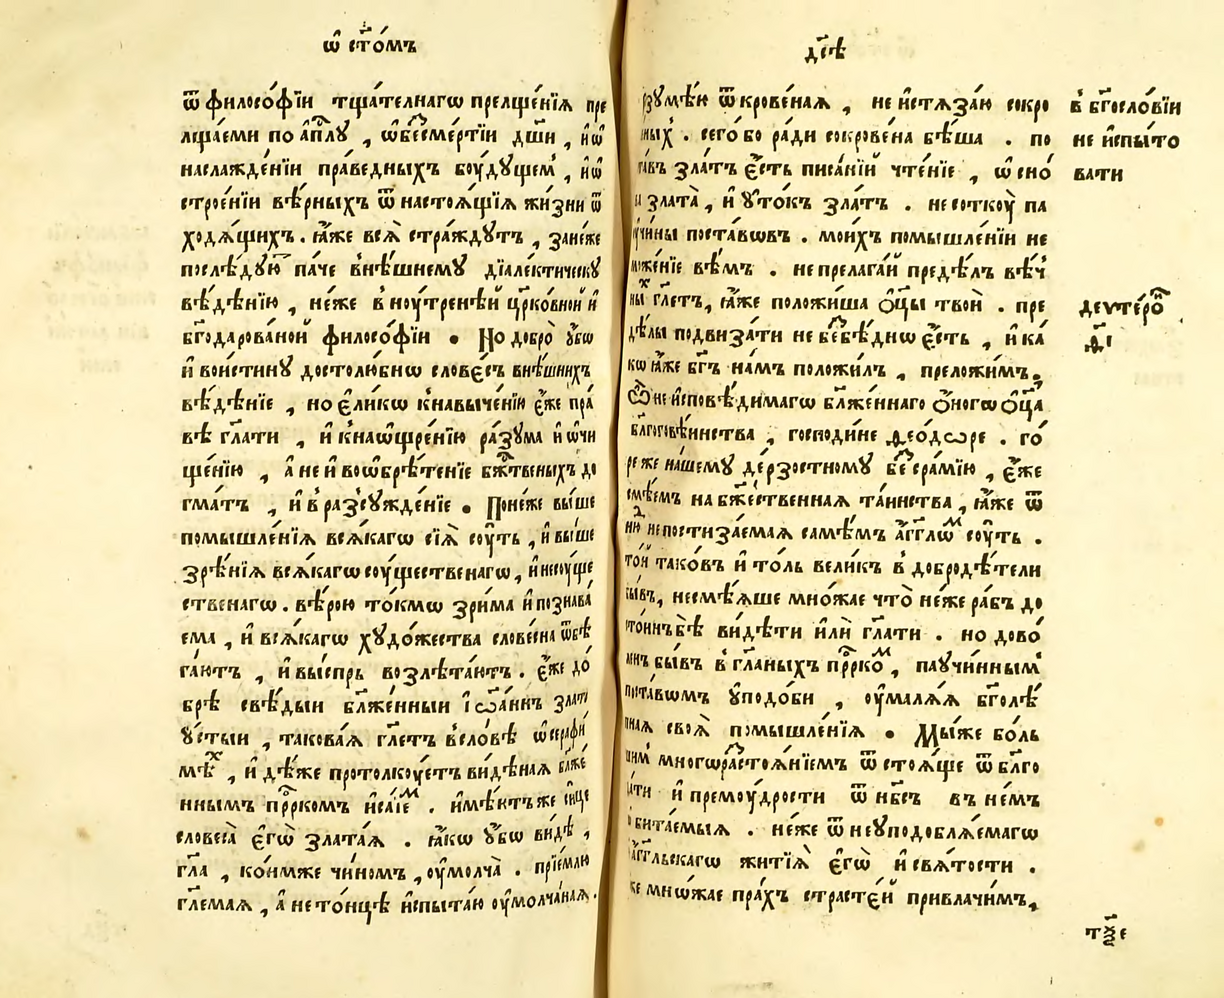 ѡ҆ ст҃о́мъ
ѿ фїлосо́фїи тща́телнагѡ прелще́нїѧ пре
лща́еми по а҆пⷭ҇лꙋ , ѡ҆беⷥсме́ртїи дш҃и , и҆ ѡ҆
наслажде́нїи пра́ведныхъ бꙋ́дꙋщемъ , и҆ ѡ҆
строе́нїи вѣ́рныхъ ѿ настоѧ́щїѧ жи́зни ѿ
ходѧ́щихъ . ꙗ҆́же всѧ̀ стра́ждꙋтъ , зане́же
послѣ́дꙋюⷮ па́че внѣ́шнемꙋ дїале́ктическꙋ
вѣ́дѣнїю , не́же в̾ноу́тренѣй црⷪ҇ко́вной и҆
бг҃одарова́ной фїлосо́фїи . Но добро̀ ᲂу҆́бѡ
и҆ вои́стинꙋ достолю́бнѡ слове́съ внѣ́шнихъ
вѣ́дѣнїе , но є҆ли́кѡ к̾навыче́нїю є҆́же пра́
вѣ гл҃ати , и҆ к̾наѡ҆щре́нїю ра́зꙋма и҆ ѡ҆чи
ще́нїю , а҆ не и҆ воѡ҆брѣ́тенїе бж҃твеныхъ до
гма́тъ , и҆ в̾разсꙋжде́нїе . Поне́же вы́ше
помышле́нїѧ всѧ́кагѡ сїѧ̀ соу́ть , и҆ вы́ше
зрѣ́нїѧ всѧ́кагѡ соу́щественагѡ , и҆ несоу́ще
ственагѡ . вѣ́рою то́кмѡ зри́ма и҆ познава́
ема , и҆ всѧ́кагѡ хꙋдо́жества слове́сна ѿбѣ
га́ютъ , и҆ вы́спрь возлѣта́ютъ . є҆́же до́
брѣ свѣ́дыи бл҃же́нныи і҆ѡа́ннъ злато
ᲂу́стыи , такова́ѧ гл҃етъ в̾сло́вѣ ѡ҆ серафі́
мѣⷯ , и҆ дѣ́же протолкоу́етъ видѣ́ная бл҃же́
ннымъ прⷪ҇ркомъ и҆са́їеⷨ . и҆мѣ́ютъ же си́це
словеса̀ є҆гѡ̀ злата́ѧ . ꙗ҆́кѡ ᲂу҆́бѡ ви́дѣ ,
гл҃а , ко́имже чи́номъ , ᲂу҆молча̀ . прїе́млю
гл҃емая , а҆ не то́нцѣ и҆спыта́ю ᲂу҆молча́ная .
дс҃іѣ
разꙋмѣ́ю ѿкрове́ная , не и҆стѧза́ю сокро
ве́ныⷯ . сего́ бо ра́ди сокрове́на бѣ́ша . по
ста́въ зла́тъ є҆́сть писа́нїй чте́нїе , ѡ҆сно́
ва злата̀ , и҆ ᲂу҆то́къ зла́тъ . не соткоу̀ па
оучи́ны поста́вѡвъ . мои́хъ помышле́нїи не
мо́женїе вѣ́мъ . не прелага́й предѣ́лъ вѣ́ч
ныⷯ гл҃етъ , ꙗ҆́же положи́ша ѻ҆ц҃ы твоѝ . пре
дѣ́лы подвиза́ти не беⷥбѣ́днѡ є҆́сть , и҆ ка́
кѡ ꙗ҆́же бг҃ъ на́мъ положи́лъ , преложи́мъ .
Ѽ не и҆сповѣди́магѡ бл҃же́ннаго ѻ҆́ногѡ ѻ҆ц҃а
бл҃гоговѣ́инства , господи́не ѳео́дѡре . го́
ре же на́шемꙋ де́рзостномꙋ беⷥсра́мїю , є҆́же
смѣ́емъ на бж҃е́ственная та́инства , ꙗ҆́же ѿ
нюⷣ непостиза́емая самѣ́мъ а҆́гг҃лѡⷨ соу́ть .
то́й тако́въ и҆ то́ль вели́къ в̾ добродѣ́тели
бы́въ , не смѣ́ѧше мно́жае что̀ не́же ра́бъ до
сто́инъ бѣ̀ ви́дѣти и҆лѝ гл҃ати . но дово́
ленъ бы́въ в̾ гл҃аныхъ прⷪ҇ркоⷨ , паучи́ннымъ
поста́вѡмъ ᲂу҆подо́би , ᲂу҆малѧ́ѧ бг҃олѣ́
пная своѧ̀ помышле́нїѧ . Мы́же бо́ль
шимъ многѡра́стоѧ́нїемъ ѿстоѧ́ще ѿ бл҃го
да́ти и҆ премоу́дрости ѿ нб҃съ въ не́мъ
ѡ҆бита́емыѧ . не́же ѿ неꙋподоблѧ́емагѡ
а҆́гг҃льскагѡ житїѧ̀ є҆гѡ̀ и҆ свѧ́тости .
є҆́же мно́жае пра́хъ страсте́й привлачи́мъ ,
в̾ бг҃осло́вїи
не и҆спы́то
вати
деѵтеро́ⷪ
ѳ҃і
тꙋⷤе